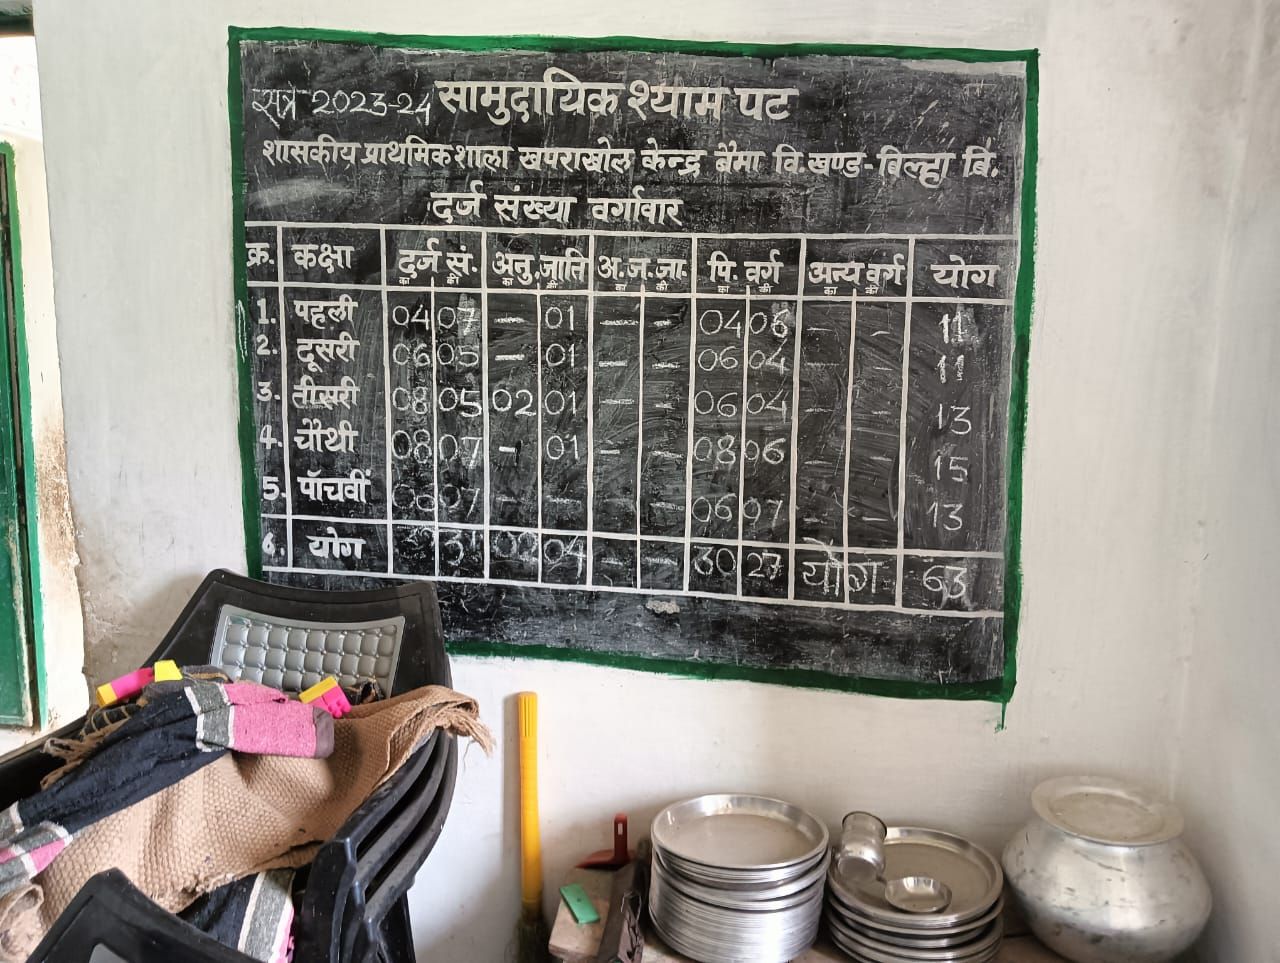 सत्र 2023-24 सामुदायिक श्याम पट
शासकीय प्राथमिक शाला खपराखोल केन्द्र बैमा वि.खण्ड- बिल्हा बि.
दर्ज संख्या वर्गावार
क्र. कक्षा दर्ज सं. अनु.जाति अ.ज.जा. पि. वर्ग अन्य वर्ग योग
का की का की का की का की का की
1. पहली 04 07 - 01 - - 04 06 - - 11
2. दूसरी 06 05 - 01 - - 06 04 - - 11
3. तीसरी 08 05 02 01 - - 06 04 - - 13
4. चौथी 08 07 - 01 - - 08 06 - - 15
5. पॉचवीं 07 - - - - 06 07 - - 13
6. योग 31 02 04 - - 30 27 योग 63